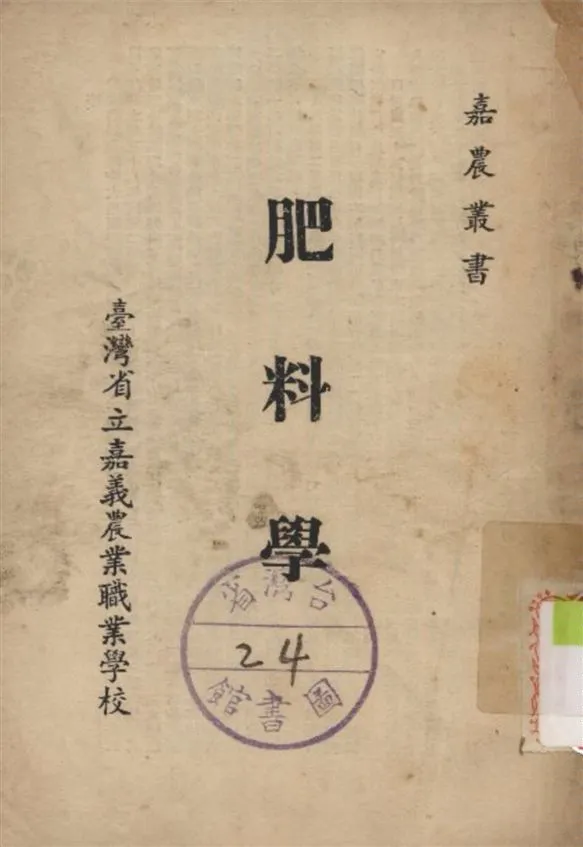 嘉農叢書
肥料學
臺灣省立嘉義農業職業學校
台灣省
24
圖書館